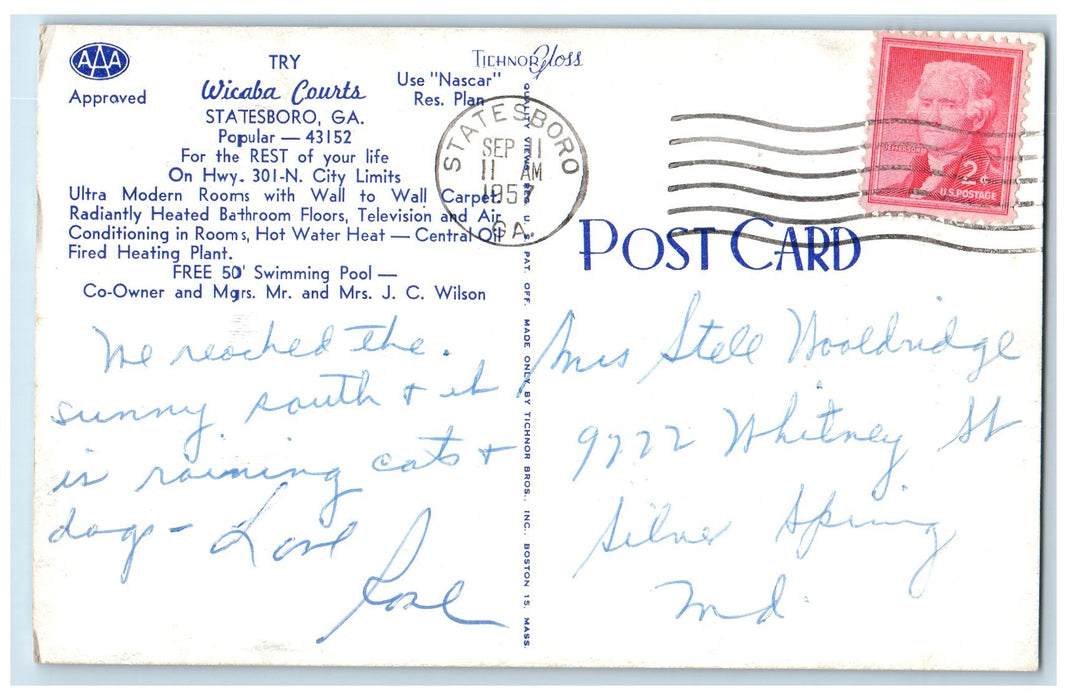 AAA
Approved
TRY
Wicaba Courts
STATESBORO, GA.
Popular — 43152
Use "Nascar"
Res. Plan
For the REST of your life
On Hwy. 301-N. City Limits
Ultra Modern Rooms with Wall to Wall Carpet,
Radiantly Heated Bathroom Floors, Television and Air
Conditioning in Rooms, Hot Water Heat — Central Oil
Fired Heating Plant.
FREE 50' Swimming Pool —
Co-Owner and Mgrs. Mr. and Mrs. J. C. Wilson
We reached the.
sunny south & it
is raining cats &
dogs - Love
Rose
TICHNOR Gloss
QUALITY VIEWS REG. U. S. PAT. OFF. MADE ONLY BY TICHNOR BROS., INC., BOSTON 15, MASS.
STATESBORO
SEP 11
11 AM
1957
GA.
2¢
U.S. POSTAGE
POST CARD
Mrs Stell Wooldridge
9722 Whitney St
Silver Spring
Md.